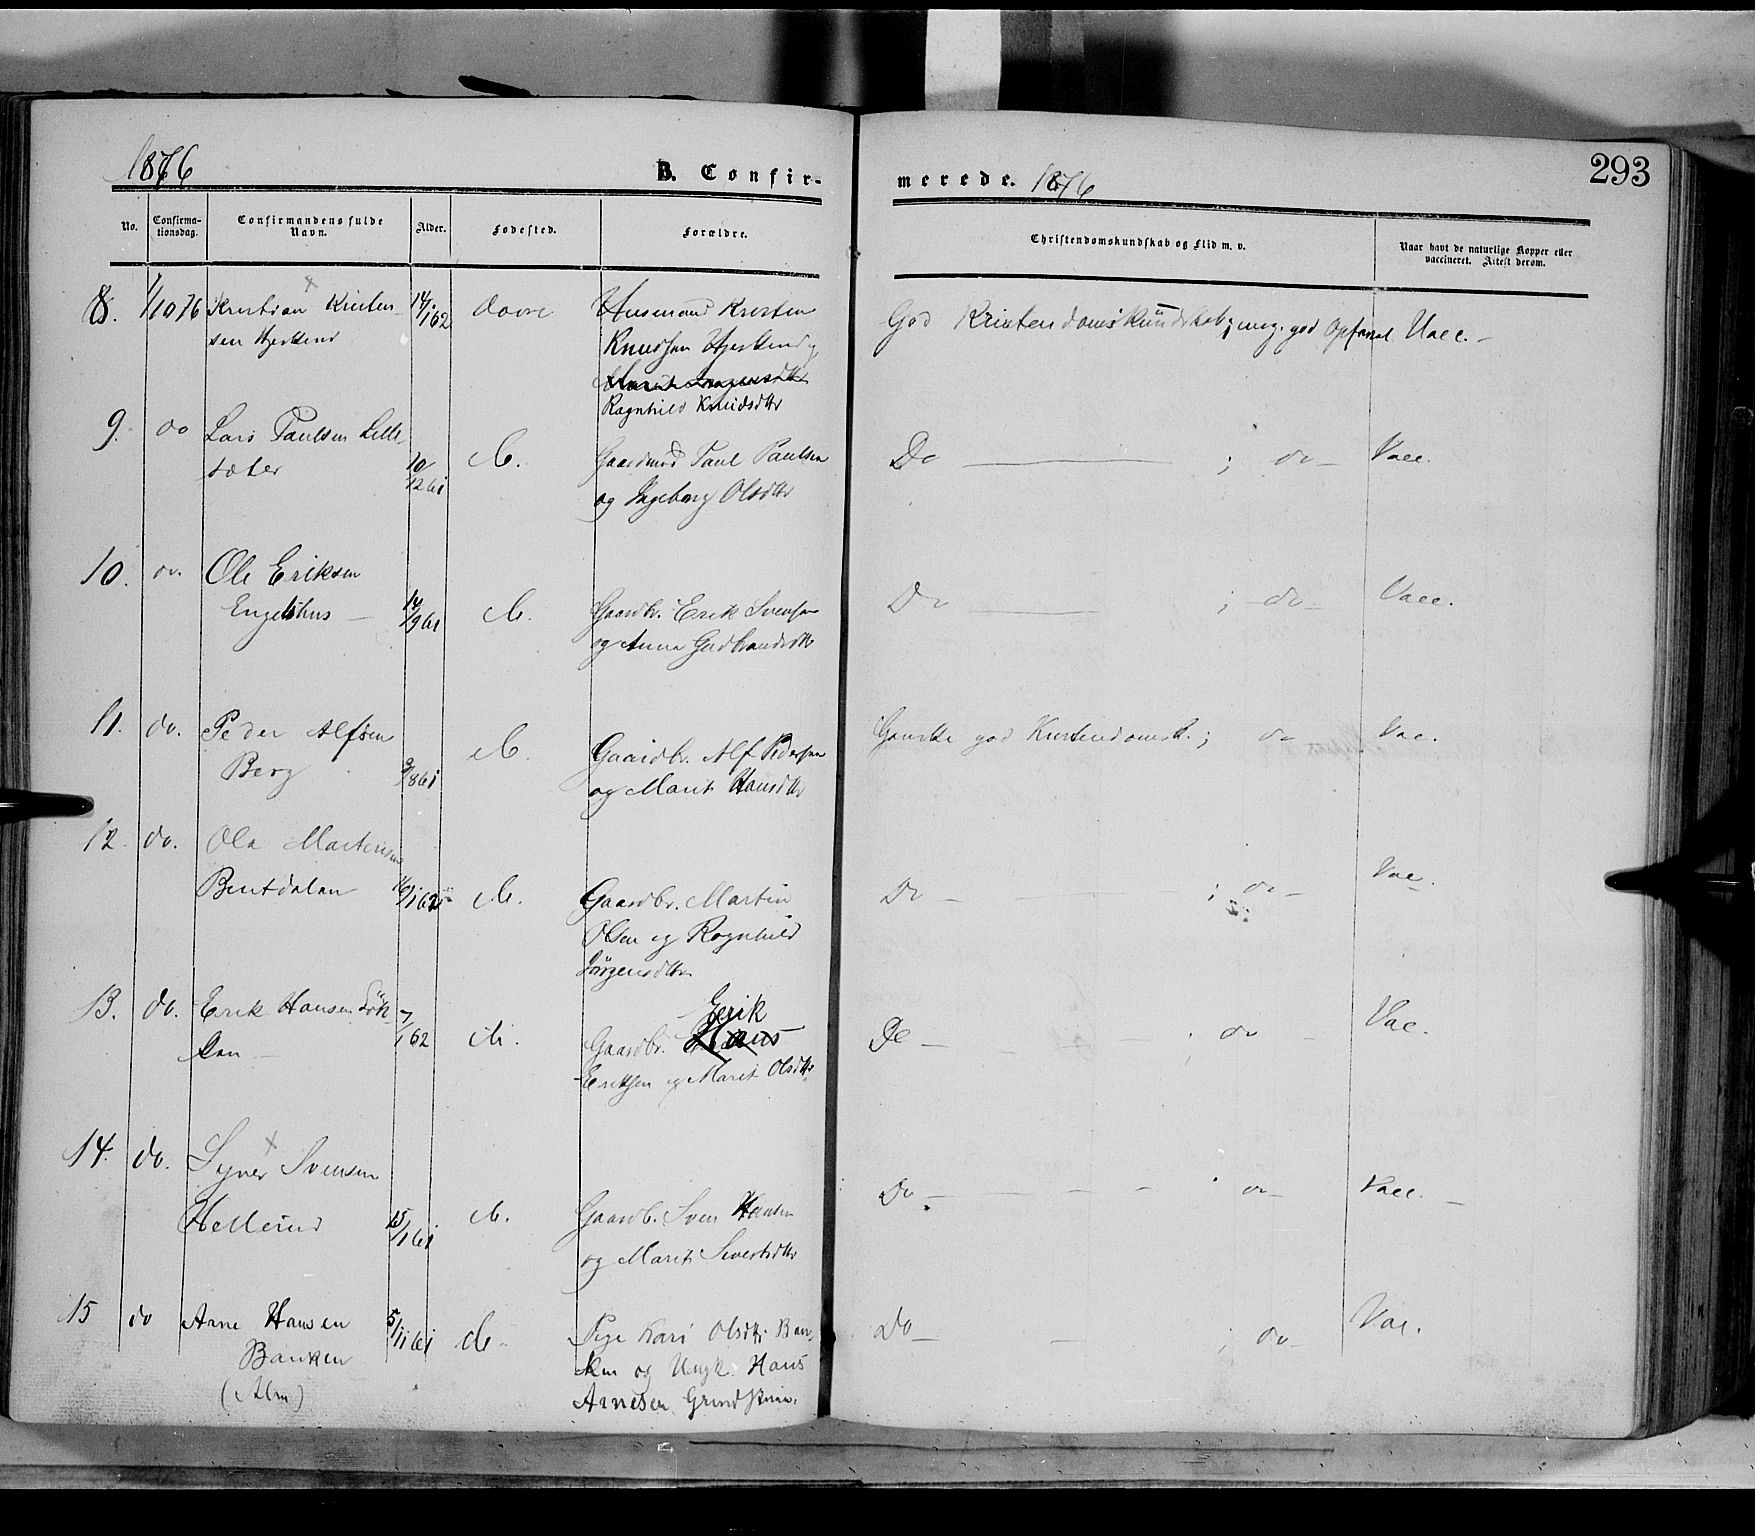 1876
B. Confir-
merede. 1876
293
No.
Confirma-
tionsdag.
Confirmandens fulde
Navn.
Alder.
Fødested.
Forældre.
Christendomskundskab og Flid m. v.
Naar havt de naturlige Kopper eller
vaccineret. Attest derom.
8. 1/10 76 Kristian Kristen- 14/1 62 Dovre Husmand Kristen God Kristendomskundskab; meg. god Opførsel Vacc. -
sen Hjerkind Knudsen Hjerkind og
Ragnhild Knudsdtr
9. do Lars Paulsen Lille- Gaardmd Paul Paulsen Do ; do - Vacc.
sæter 10/12 61 og Ingeborg Olsdtr
10. do. Ole Eriksen Do ; do - Vacc.
Engelshus - 14/9 61 Gaardbr. Erik Svensen
og Anna Gudbrandsdtr
11. do. Peder Alfsen Ganske god Kristendomsk.; do Vac.
Berg 3/8 61 Gaardbr. Alf Pedersen
og Marit Hansdtr
12. do. Ola Martinsen
Bentdalen 16/1 62 Gaardbr. Martin Do - ; do - Vac.
Olsen og Ragnhild
Jörgensdtr
13. do. Erik Hansen 7/1 62 Erik Do - ; do - Vac.
Gaardbr. Hans
Eriksen og Marit Olsdtr
14. do. Syver Svensen Do - ; do - Vacc. -
Hellerud 15/1 61 Gaardb. Sven Hansen
og Marit Sivertsdtr
15 do Arne Hansen 5/11 61 Pige Kari Olsdtr Ban- Do - ; do - Vac.
Banken ken og Ungk. Hans
(Alm) Arnesen